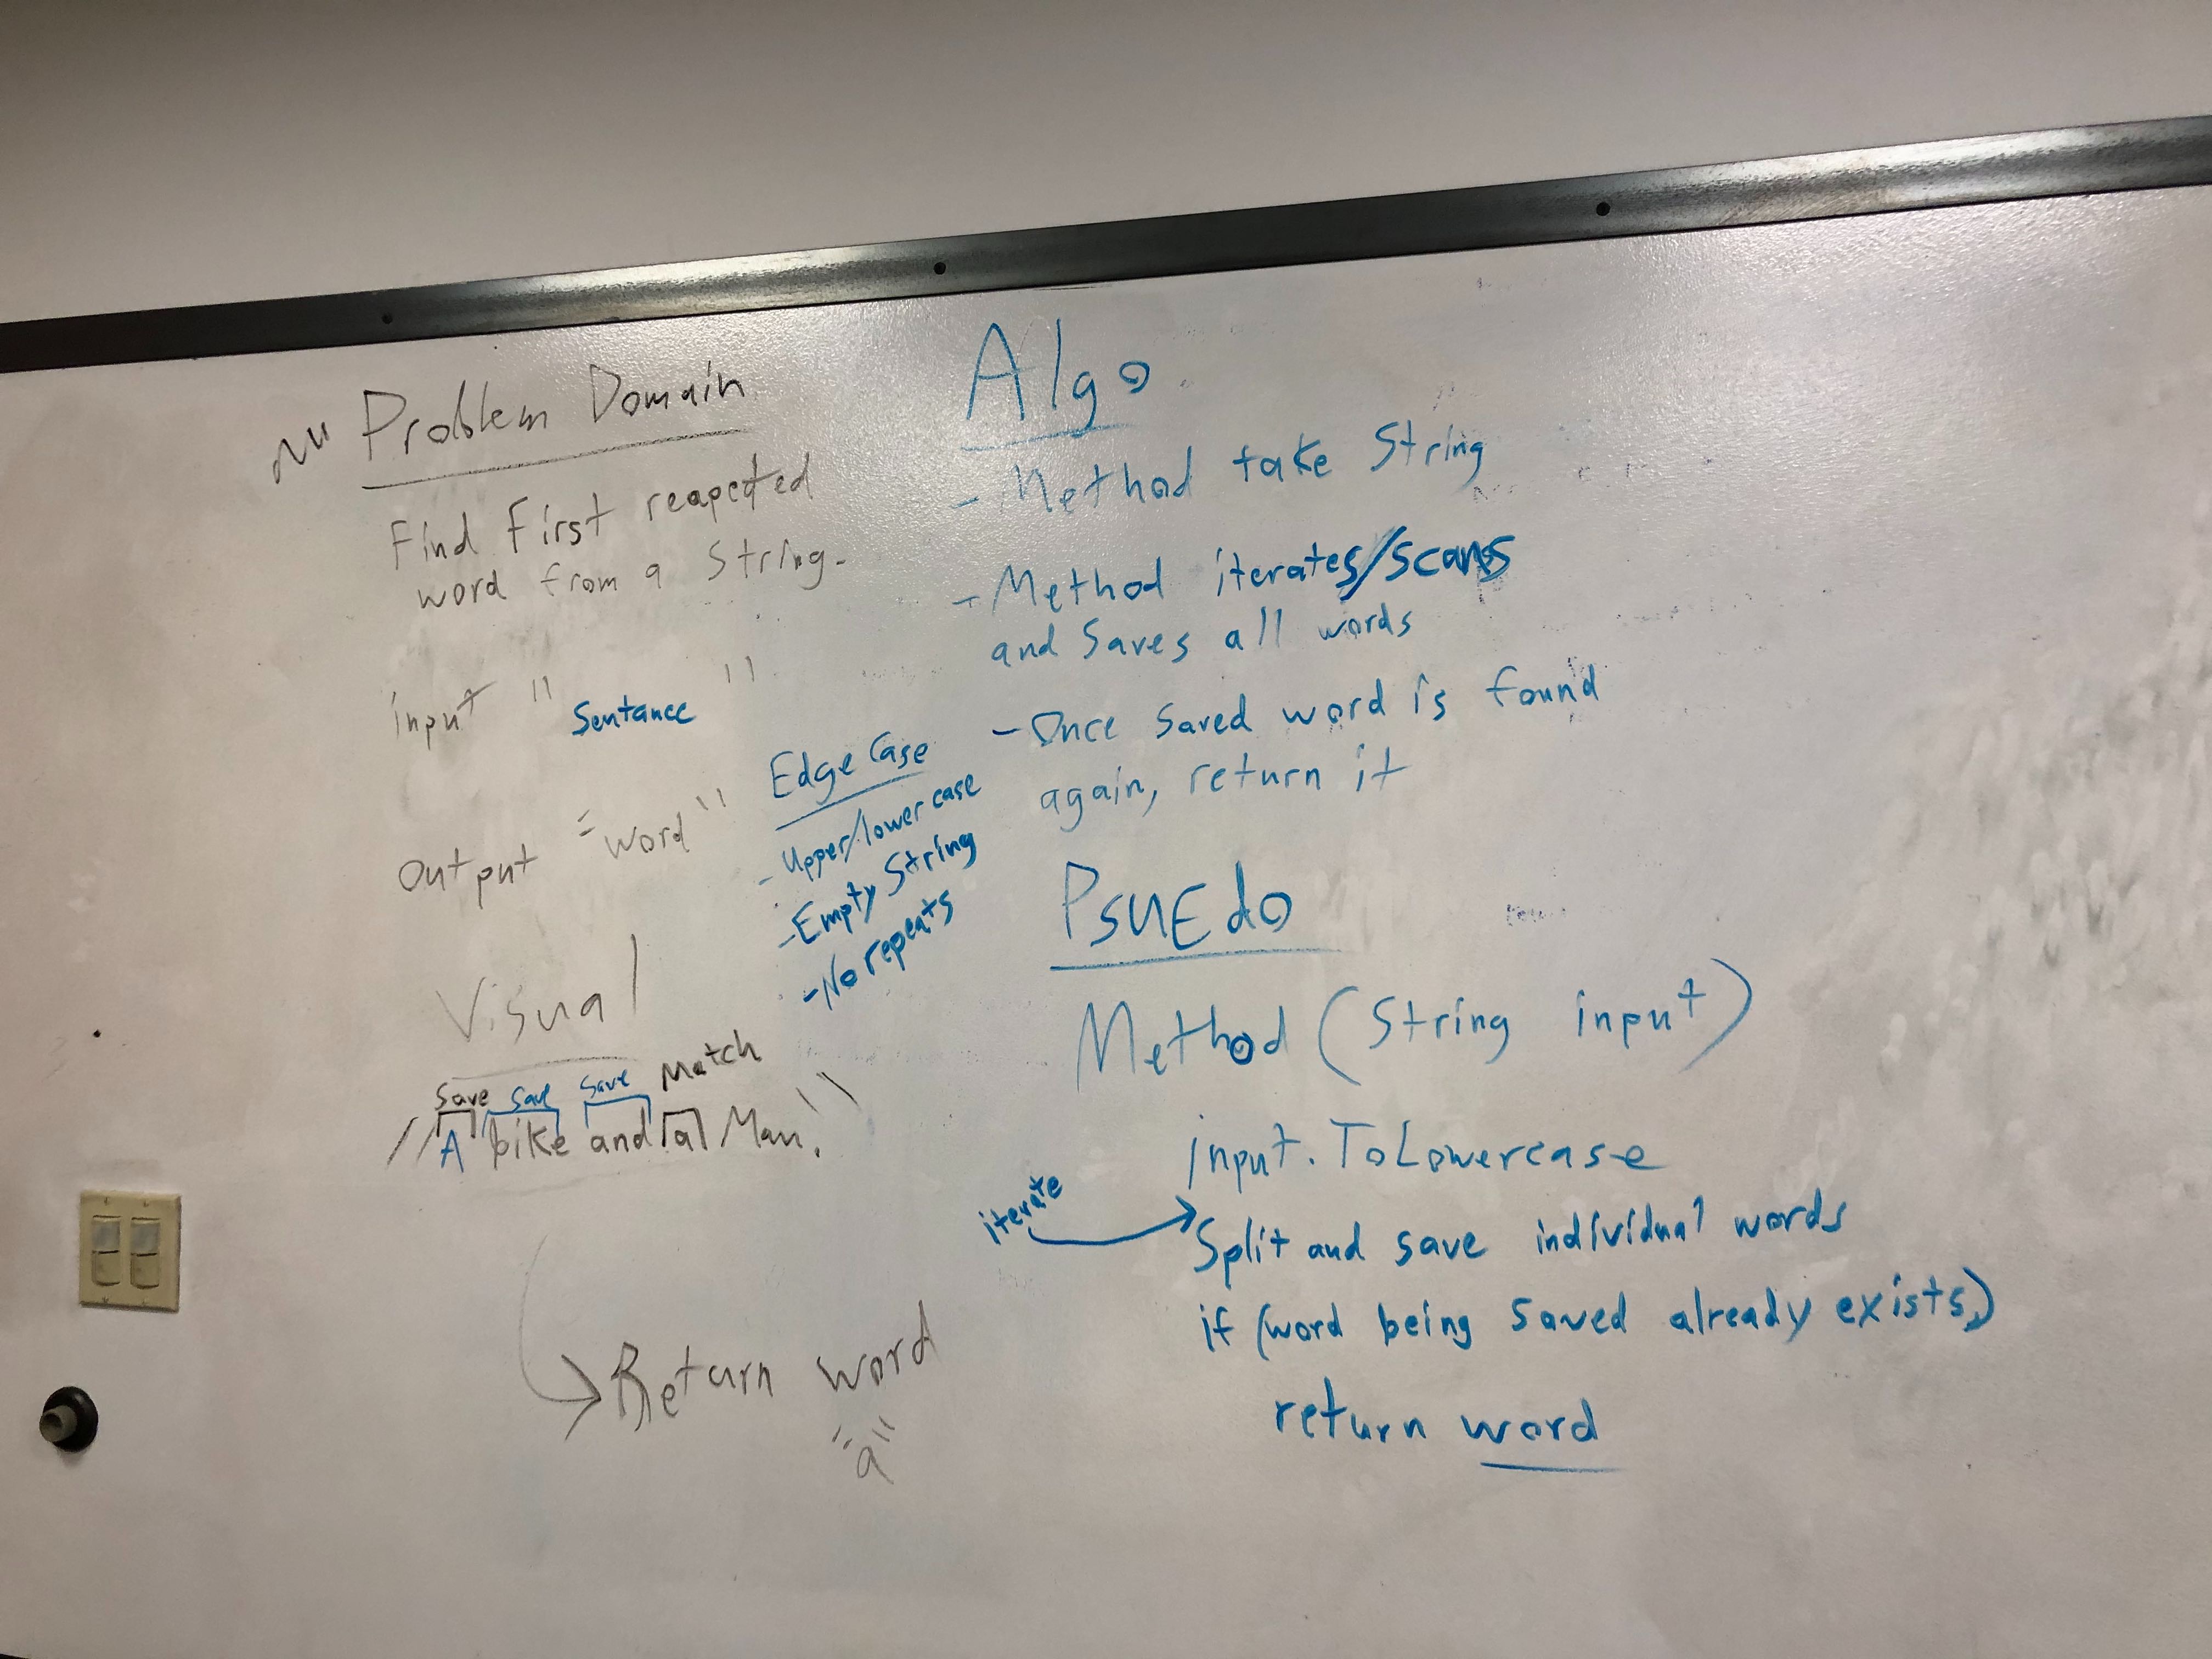 Problem Domain
Find First reapeted
word from a String.
input " Sentance "
Output "word"
Edge Case
- Upper/lower case
- Empty String
- No repeats
Visual
Save Save Save Match
"A bike and a Man."
Return word
"a"
Algo
- Method take String
- Method iterates/scans
and Saves all words
- Once saved word is found
again, return it
PsuEdo
Method (String input)
input.ToLowercase
iterate
Split and save individual words
if (word being saved already exists)
return word